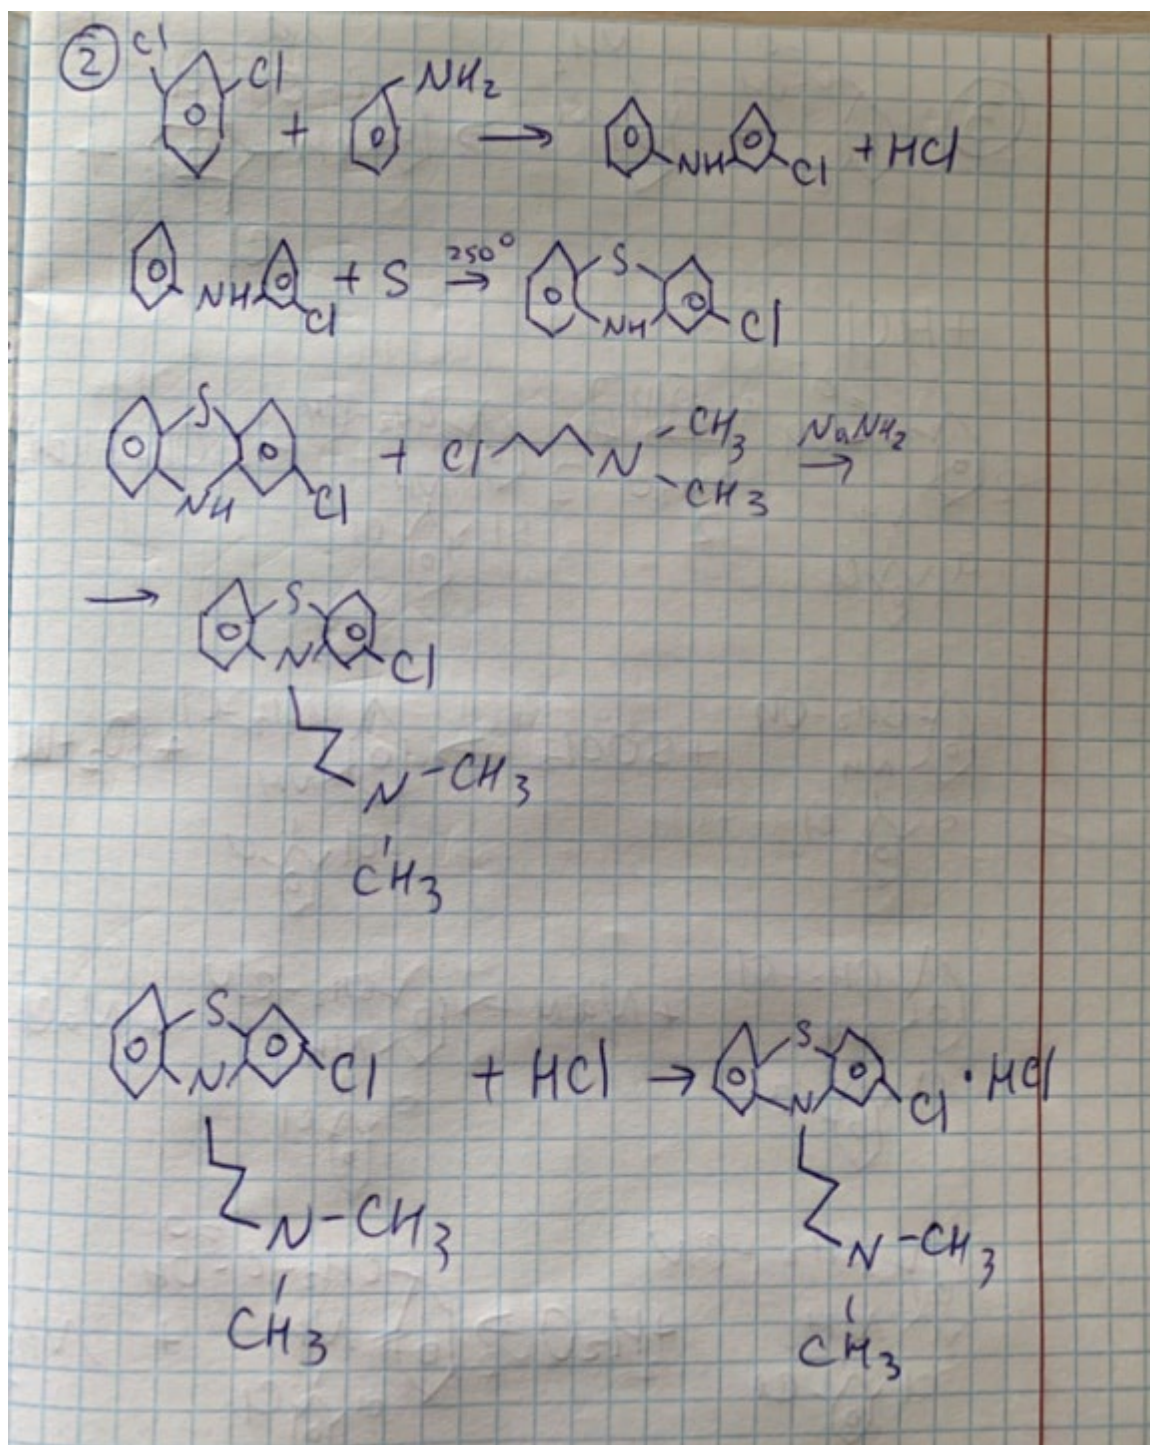 ② Cl Cl + NH₂ → NH Cl + HCl
NH Cl + S 250° → S NH Cl
S NH Cl + Cl N CH₃ CH₃ NaNH₂ →
→ S N Cl
N-CH₃
CH₃
S N Cl + HCl → S N Cl · HCl
N-CH₃ N-CH₃
CH₃ CH₃